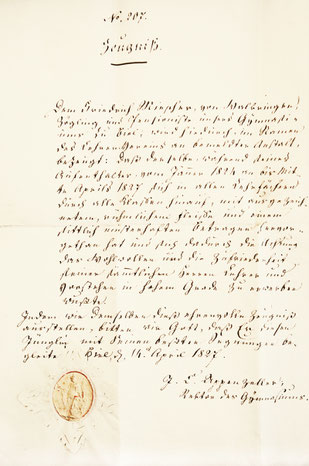 No. 207.
Zeugniß.
Dem Friedrich Mischer, von Walkringen,
Zögling und Pensionist unsers Gymnasi-
ums zu Biel, wird hiedurch, im Namen
des Lehrer-Vereins an bemeldter Anstalt,
bezeugt: daß derselbe, während seines
Aufenthaltes vom Jäner 1824 an bis Mit-
te Aprils 1827 sich in allen Lehrfächern
durch alle Klassen hinauf, mit ausgezeich-
netem, rühmlichem Fleiße und einem
sittlich musterhaften Betragen hervor-
gethan hat und sich dadurch die Achtung
das Wohlwollen und die Zufriedenheit
seiner sämmtlichen Herren Lehrer und
Vorsteher in hohem Grade zu erwerben
wußte.
Indem wir demselben dieß ehrenvolle Zeugniß
ausstellen, bitten wir Gott, daß Er diesen
Jüngling mit Seinen besten Segnungen be-
gleite. Biel, d. 14. April 1827.
Appenzeller,
Rektor des Gymnasiums.